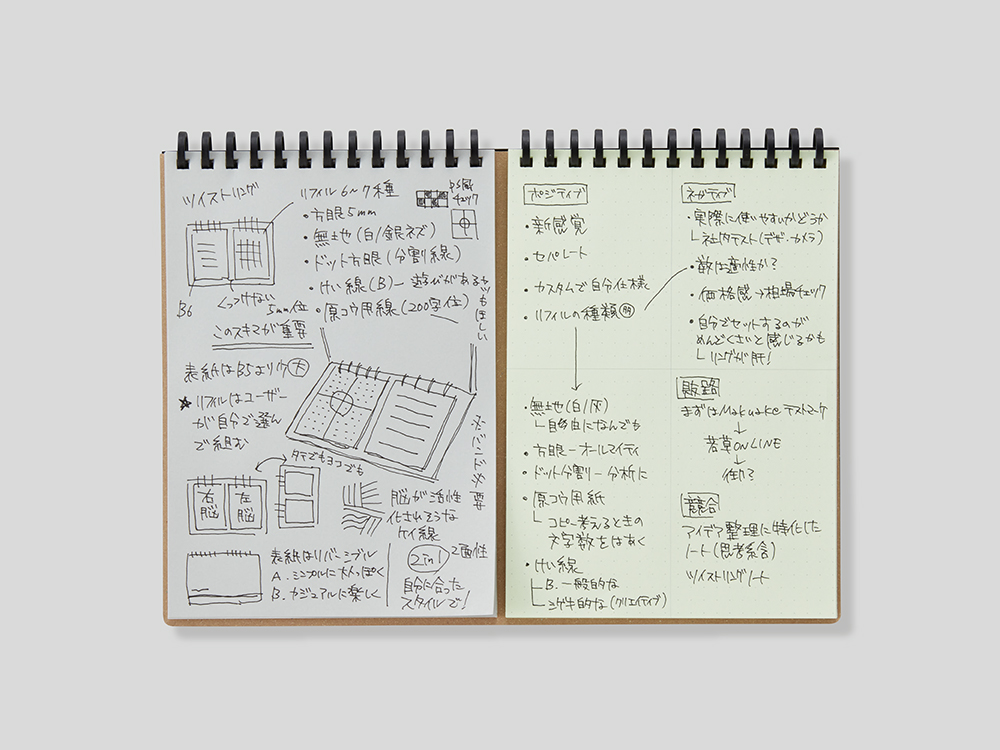 ツイストリング
リフィル6〜7種
・方眼5mm
・無地(白/銀ネズ)
・ドット方眼(分割線)
・けい線(B)― 遊びがあるヤツもほしい
・原コウ用線(200字位)
チェック
B6
くっつけない
5mm位
このスキマが重要
表紙はB5よりウ大
★リフィルはユーザー
が自分で選ん
で組む
※バンド必要
タテでもヨコでも
右脳
左脳
脳が活性
化されそうな
ケイ線
表紙はリバーシブル
A.シンプルに大人っぽく
B.カジュアルに楽しく
2in1
2面性
自分に合った
スタイルで!
ポジティブ
・新感覚
・セパレート
・カスタムで自分仕様
・リフィルの種類
・無地(白/灰)
└自由になんでも
・方眼―オールマイティ
・ドット分割―分析に
・原コウ用紙
└コピー考えるときの
文字数をはあく
・けい線
├B.一般的な
└シゲキ的な(クリエイティブ)
ネガティブ
・実際に使いやすいかどうか
└社内テスト(デザ・カメラ)
・数は適性か?
・価格感→相場チェック
・自分でセットするのが
めんどくさいと感じるかも
└リングが肝!
販路
まずはMakuakeテストマーケ
↓
若草ONLINE
↓
競合
アイデア整理に特化した
ノート(思考系合)
ツイストリングノート